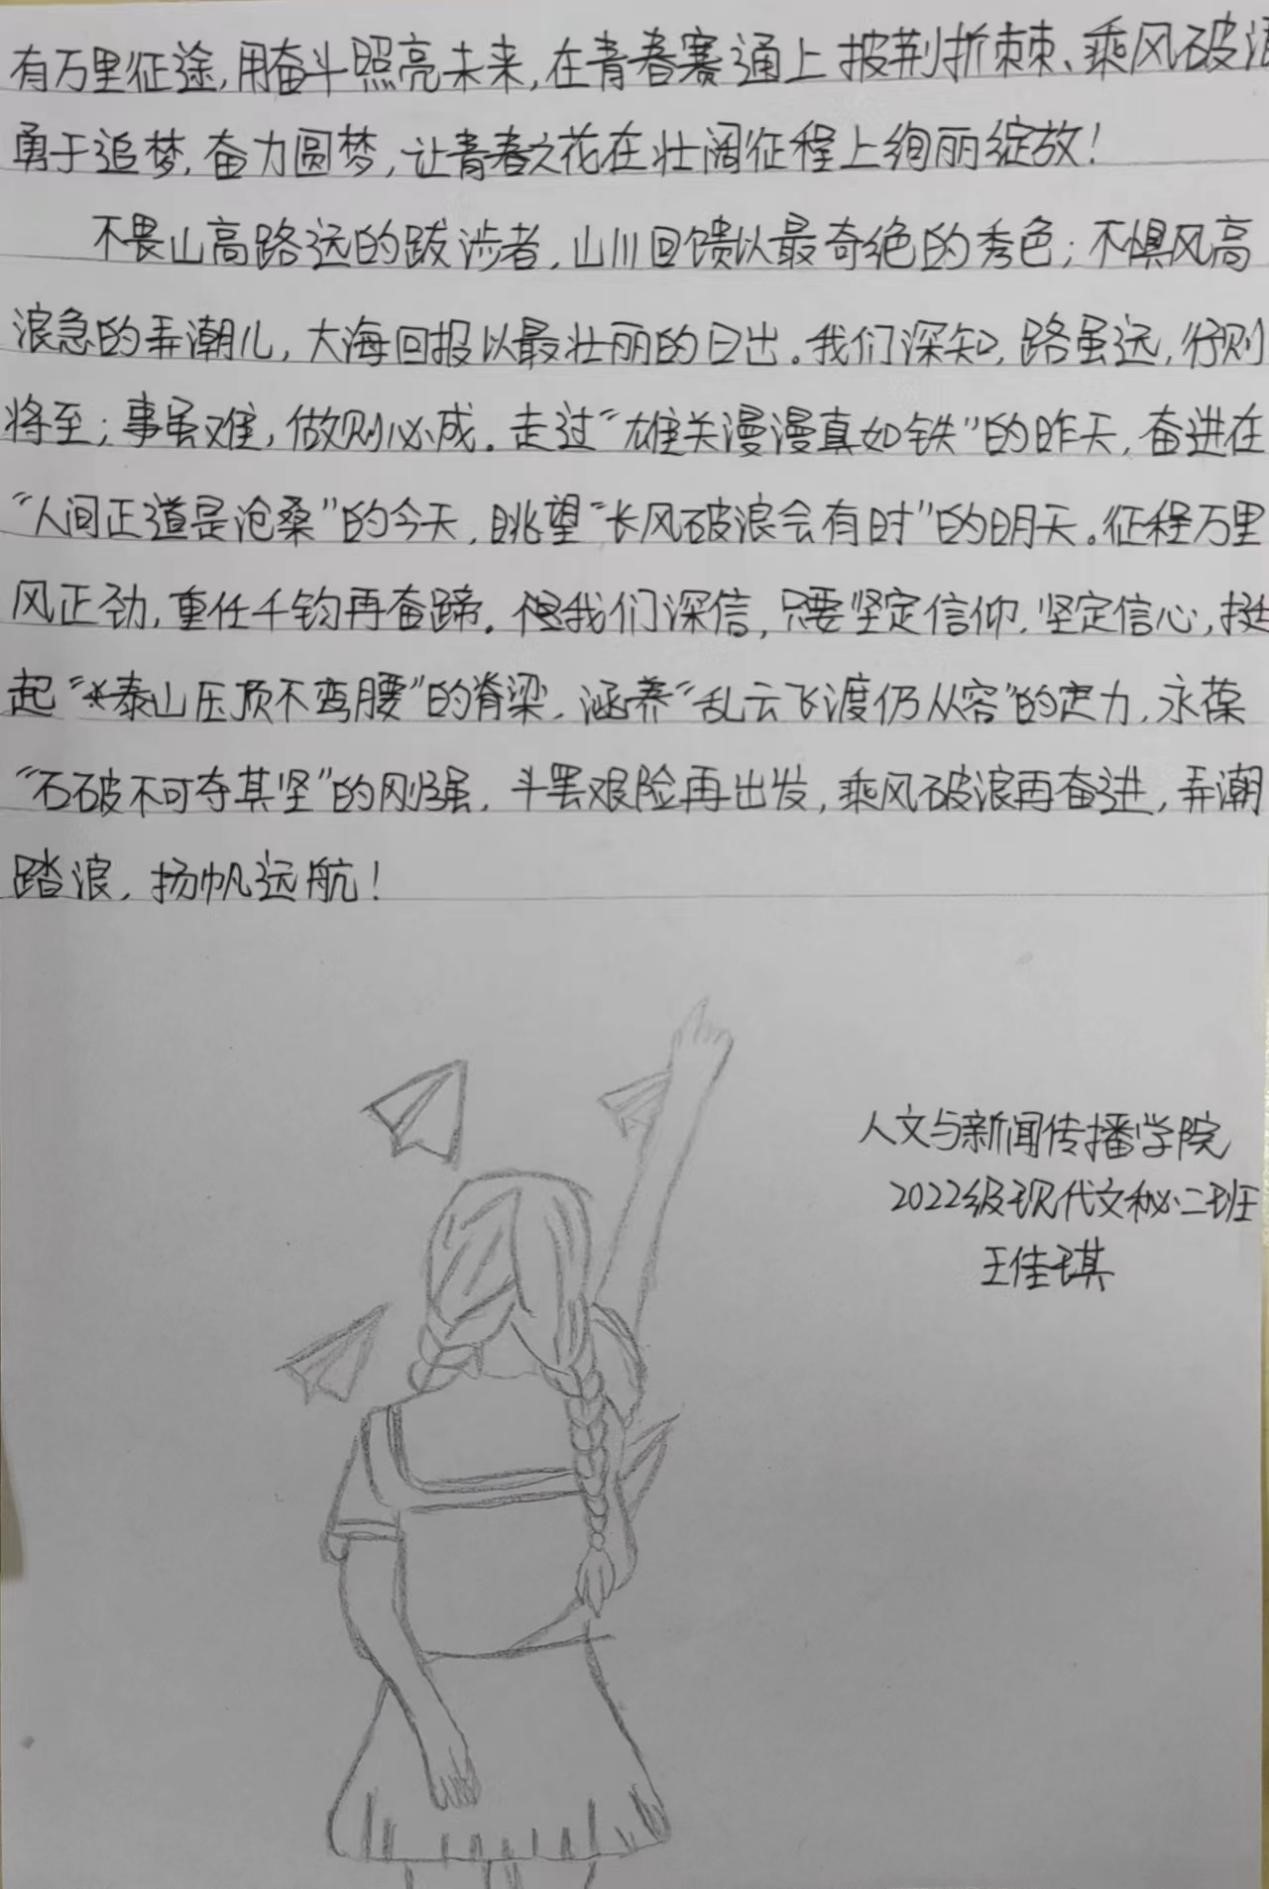 有万里征途,用奋斗照亮未来,在青春赛通上披荆折棘、乘风破浪
勇于追梦,奋力圆梦,让青春之花在壮阔征程上绚丽绽放!
不畏山高路远的跋涉者,山川回馈以最奇绝的秀色;不惧风高
浪急的弄潮儿,大海回报以最壮丽的日出。我们深知,路虽远,行则
将至;事虽难,做则必成。走过“雄关漫漫真如铁”的昨天,奋进在
“人间正道是沧桑”的今天,眺望“长风破浪会有时”的明天。征程万里
风正劲,重任千钧再奋蹄。但我们深信,只要坚定信仰,坚定信心,挺
起“泰山压顶不弯腰”的脊梁,涵养“乱云飞渡仍从容”的定力,永葆
“石破不可夺其坚”的刚强,斗罢艰险再出发,乘风破浪再奋进,弄潮
踏浪,扬帆远航!
人文与新闻传播学院
2022级现代文秘二班
王佳琪